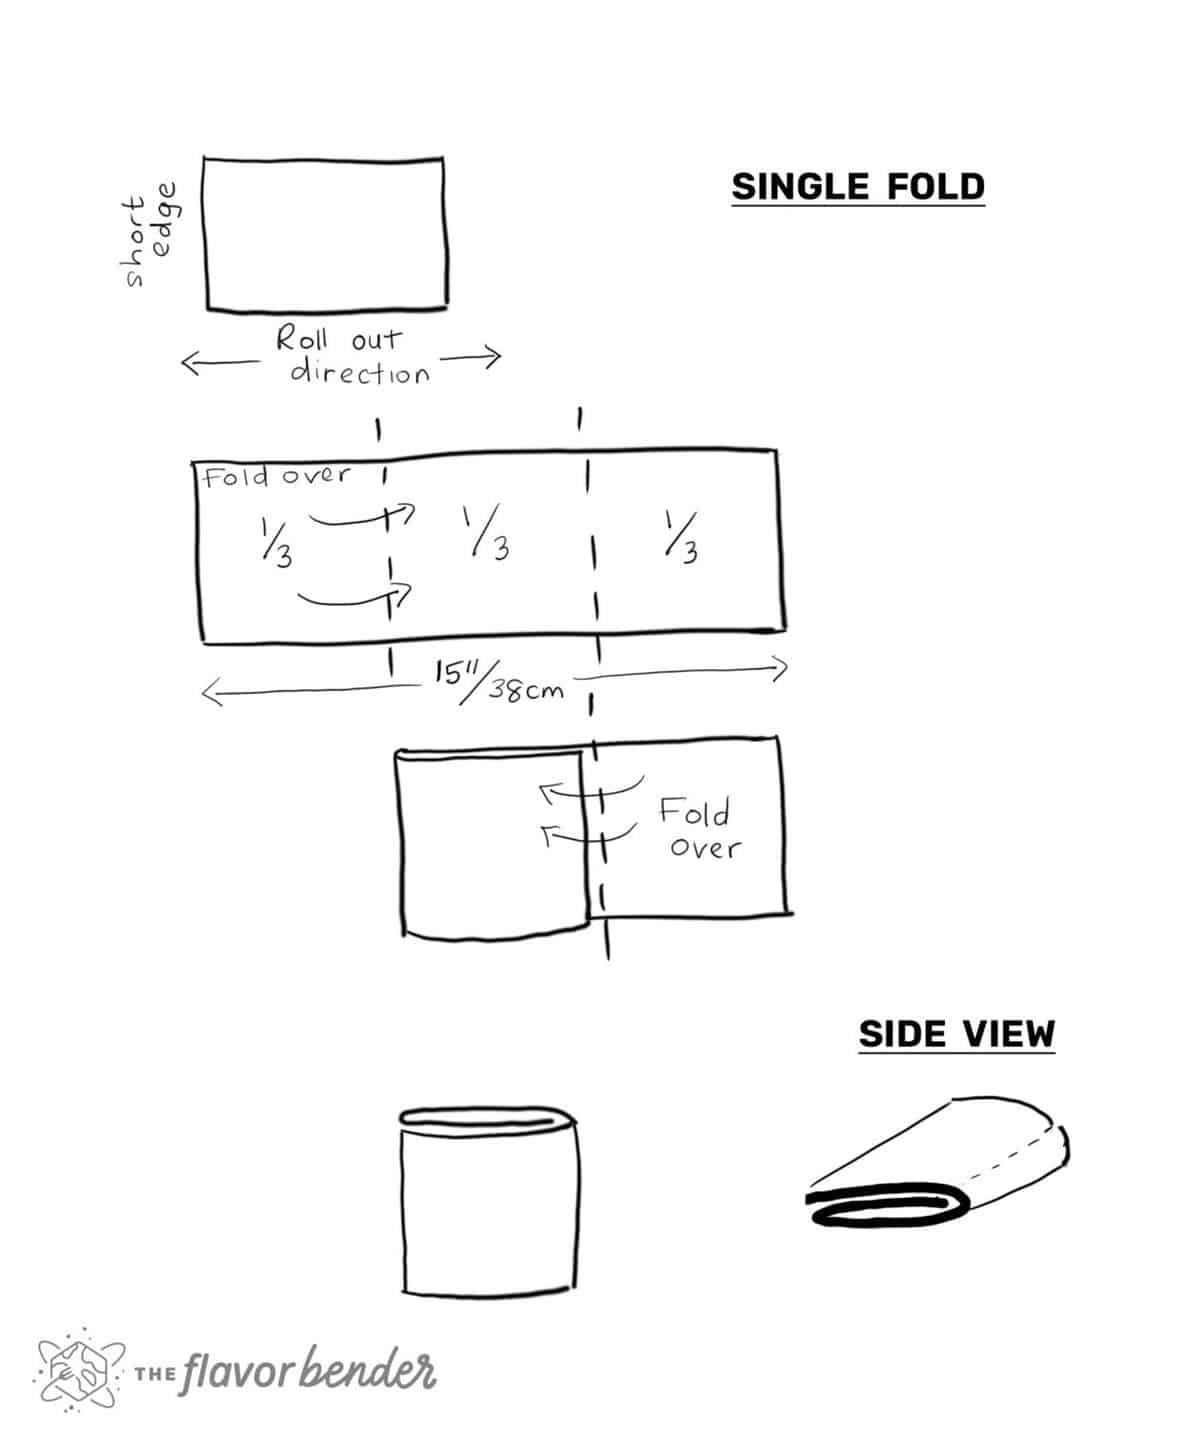 SINGLE FOLD
short
edge
Roll out
direction
Fold over
1/3
1/3
1/3
15"/38cm
Fold
over
SIDE VIEW
THE flavor bender